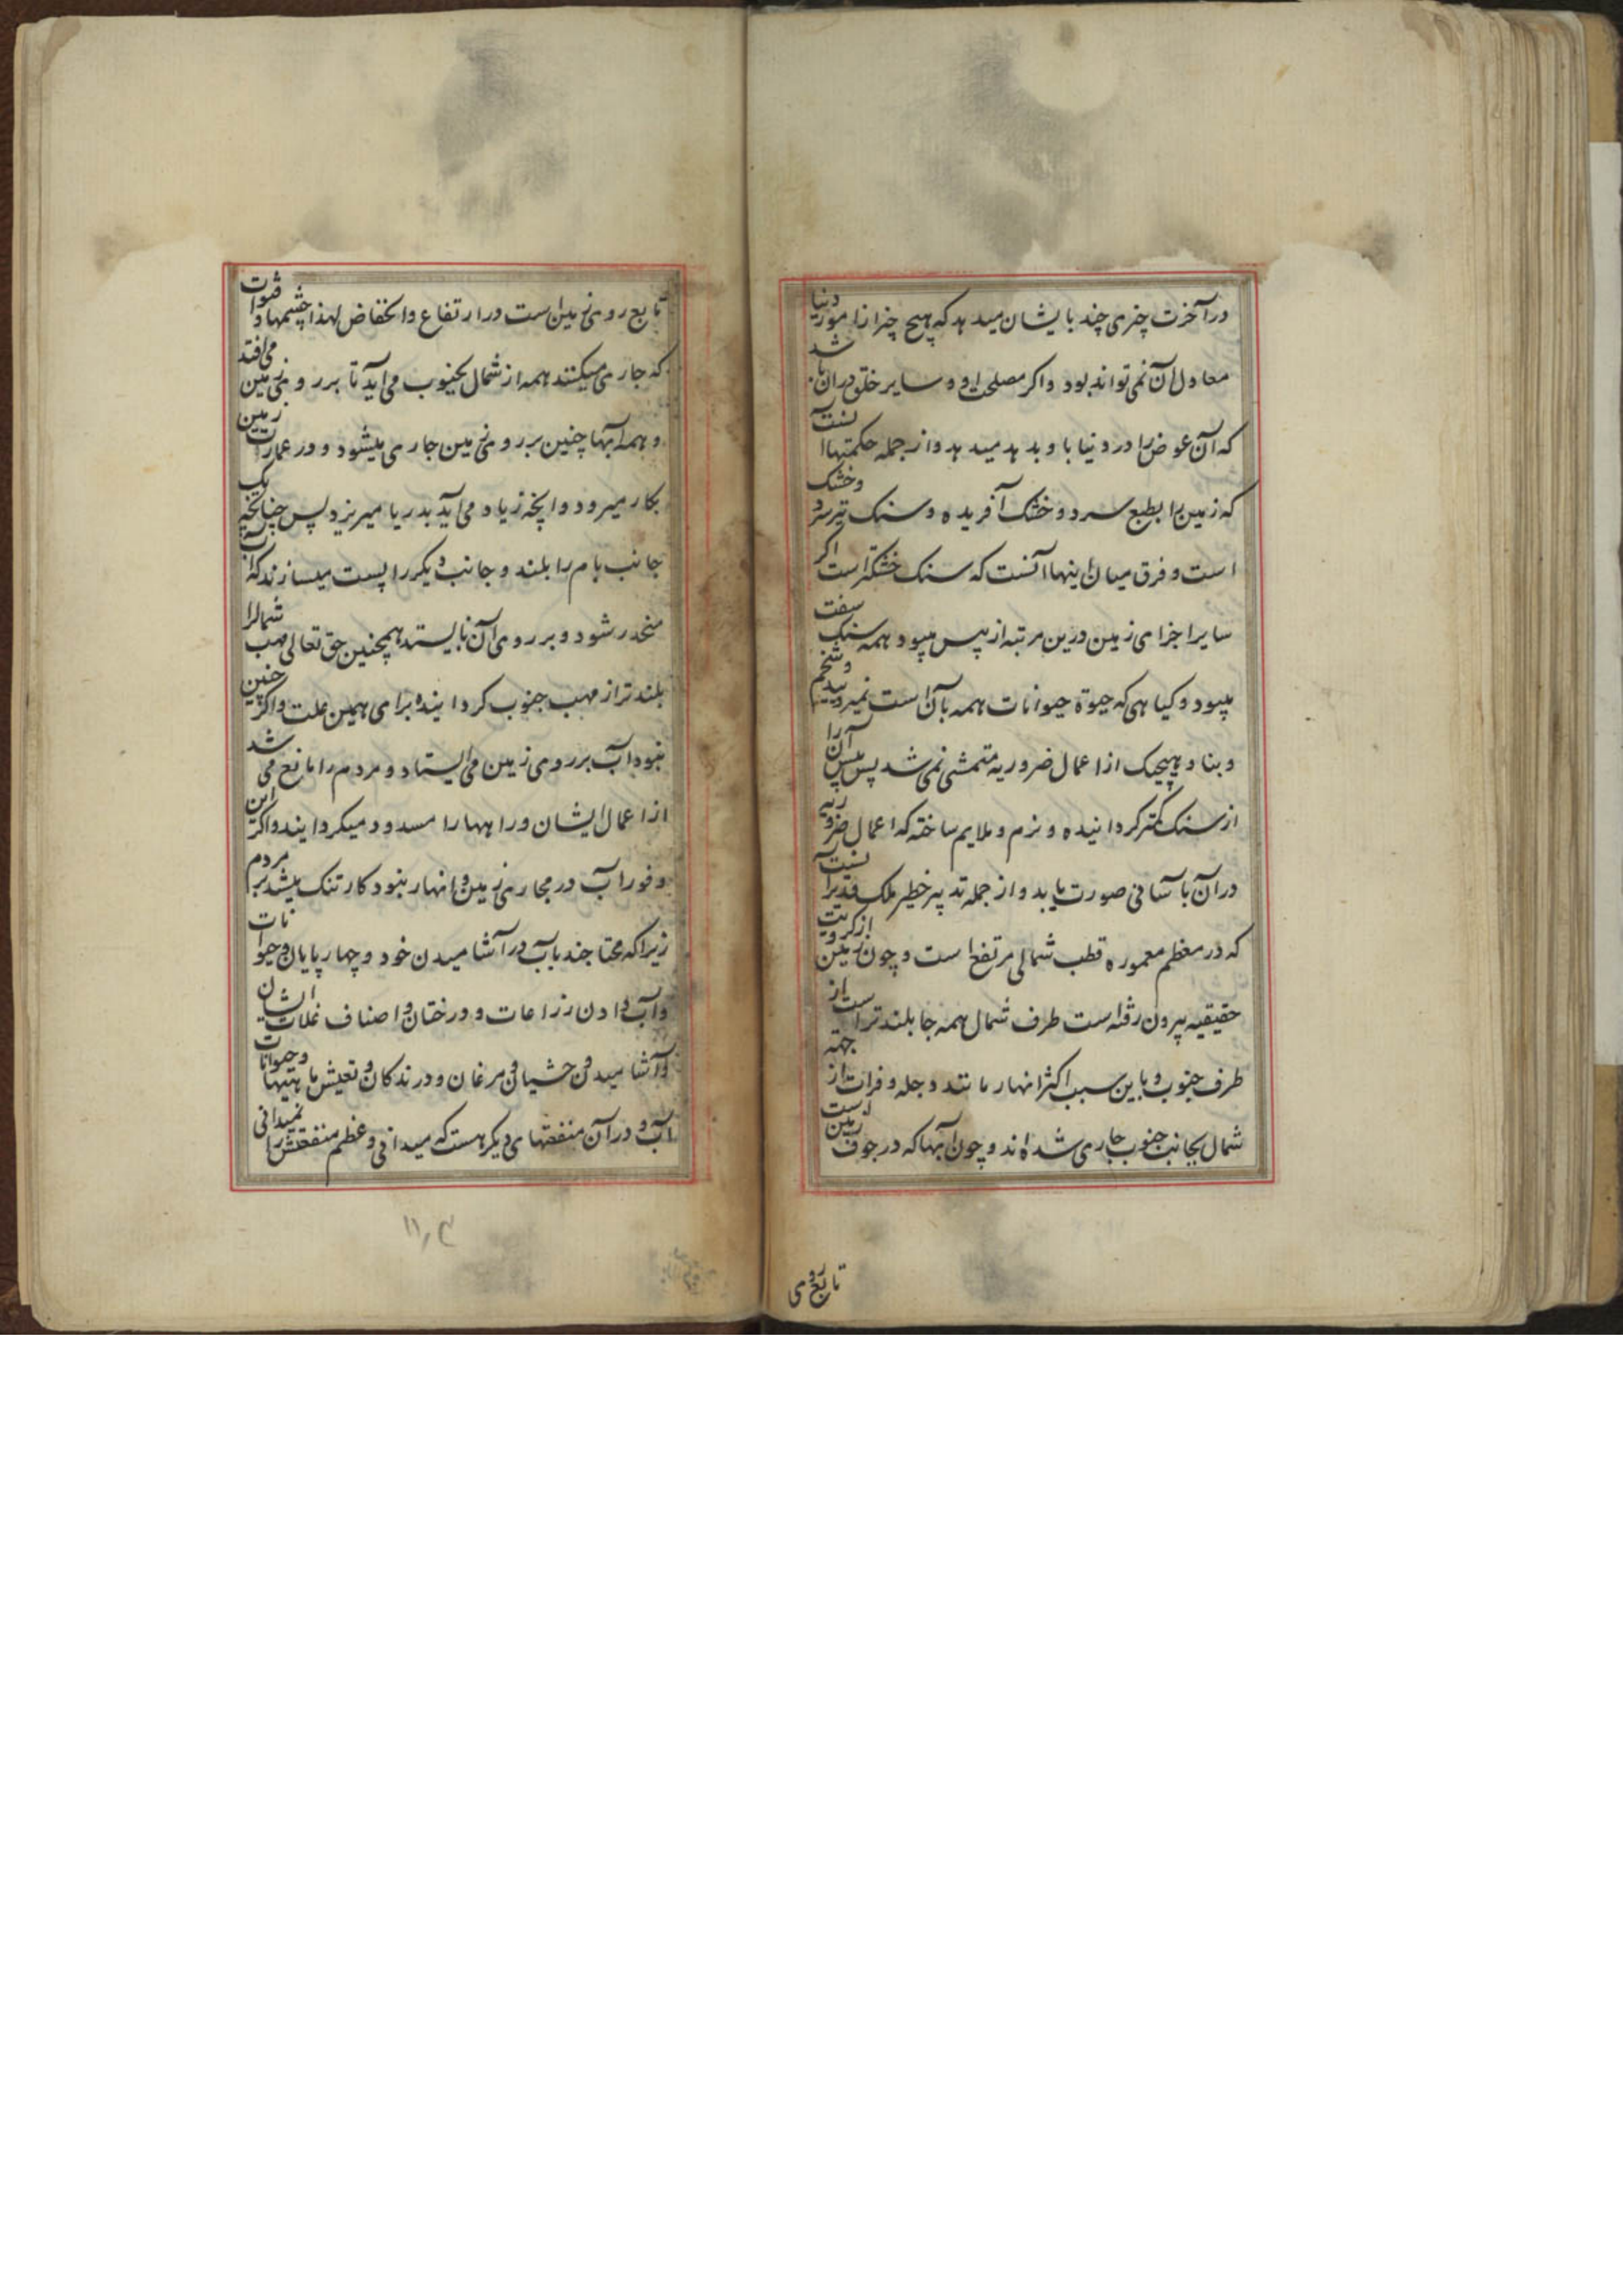 در آخرت چیزی چند بایشان میدهد که هیچ چیز از امور دنیا
معادل آن نمی تواند بود و اکر مصلحت او و سایر خلق در آن باشد
که آن عوض را در دنیا باو بدهد میدهد و از جمله حکمتها آنست
که زمین را بطبع سرد و خشک آفریده و سنک نیز سرد و خشک
است و فرق میان اینها آنست که سنک خشکتر است اکر
سایر اجزای زمین درین مرتبه از یبس میبود همه سنک سفت
میبود و کیاهی که حیوة حیوانات همه بآن است نمیرویید و شخم
و بنا و هیچیک از اعمال ضروریه متمشی نمی شد پس یبس آن را
از سنک کمتر کردانیده و نرم و ملایم ساخته که اعمال ضروریه
در آن بآسانی صورت یابد و از جمله تدبیر خطیر ملک قدیر آنست
که در معظم معموره قطب شمالی مرتفع است و چون زمین از کرویت
حقیقیه بیرون رفته است طرف شمال همه جا بلندتر است از
طرف جنوب و باین سبب اکثر انهار مانند دجله و فرات از جهة
شمال بجانب جنوب جاری شده اند و چون آبها که در جوف زمین است
تابع روی
تابع روی زمین است در ارتفاع و انخفاض لهذا چشمها و قنوات
که جاری میکنند همه از شمال بجنوب می آید تا بر روی زمین می افتد
و همه آبها چنین بر روی زمین جاری میشود و در عمارت زمین
بکار میرود و آنچه زیاد می آید بدریا میریزد پس چنانچه یک
جانب بام را بلند و جانب دیکر را پست میسازند که آب
منحدر شود و بر روی آن نایستد همچنین حق تعالی مهب شمال را
بلندتر از مهب جنوب کردانیده برای همین علت و اکر چنین
نبود آب بر روی زمین می ایستاد و مردم را مانع می شد
از اعمال ایشان و راهها را مسدود میکردانید و اکر این
وفور آب در مجاری زمین و انهار نبود کار تنک میشد بر مردم
زیرا که محتاجند بآب در آشامیدن خود و چهارپایان و حیوانات
و آب دادن زراعات و درختان و اصناف غلات ایشان
و آشامیدن وحشیان و مرغان و درندکان و تعیش ماهیها و حیوانات
آب و در آن منفعتهای دیکر هست که میدانی و عظم منفعتش را نمیدانی